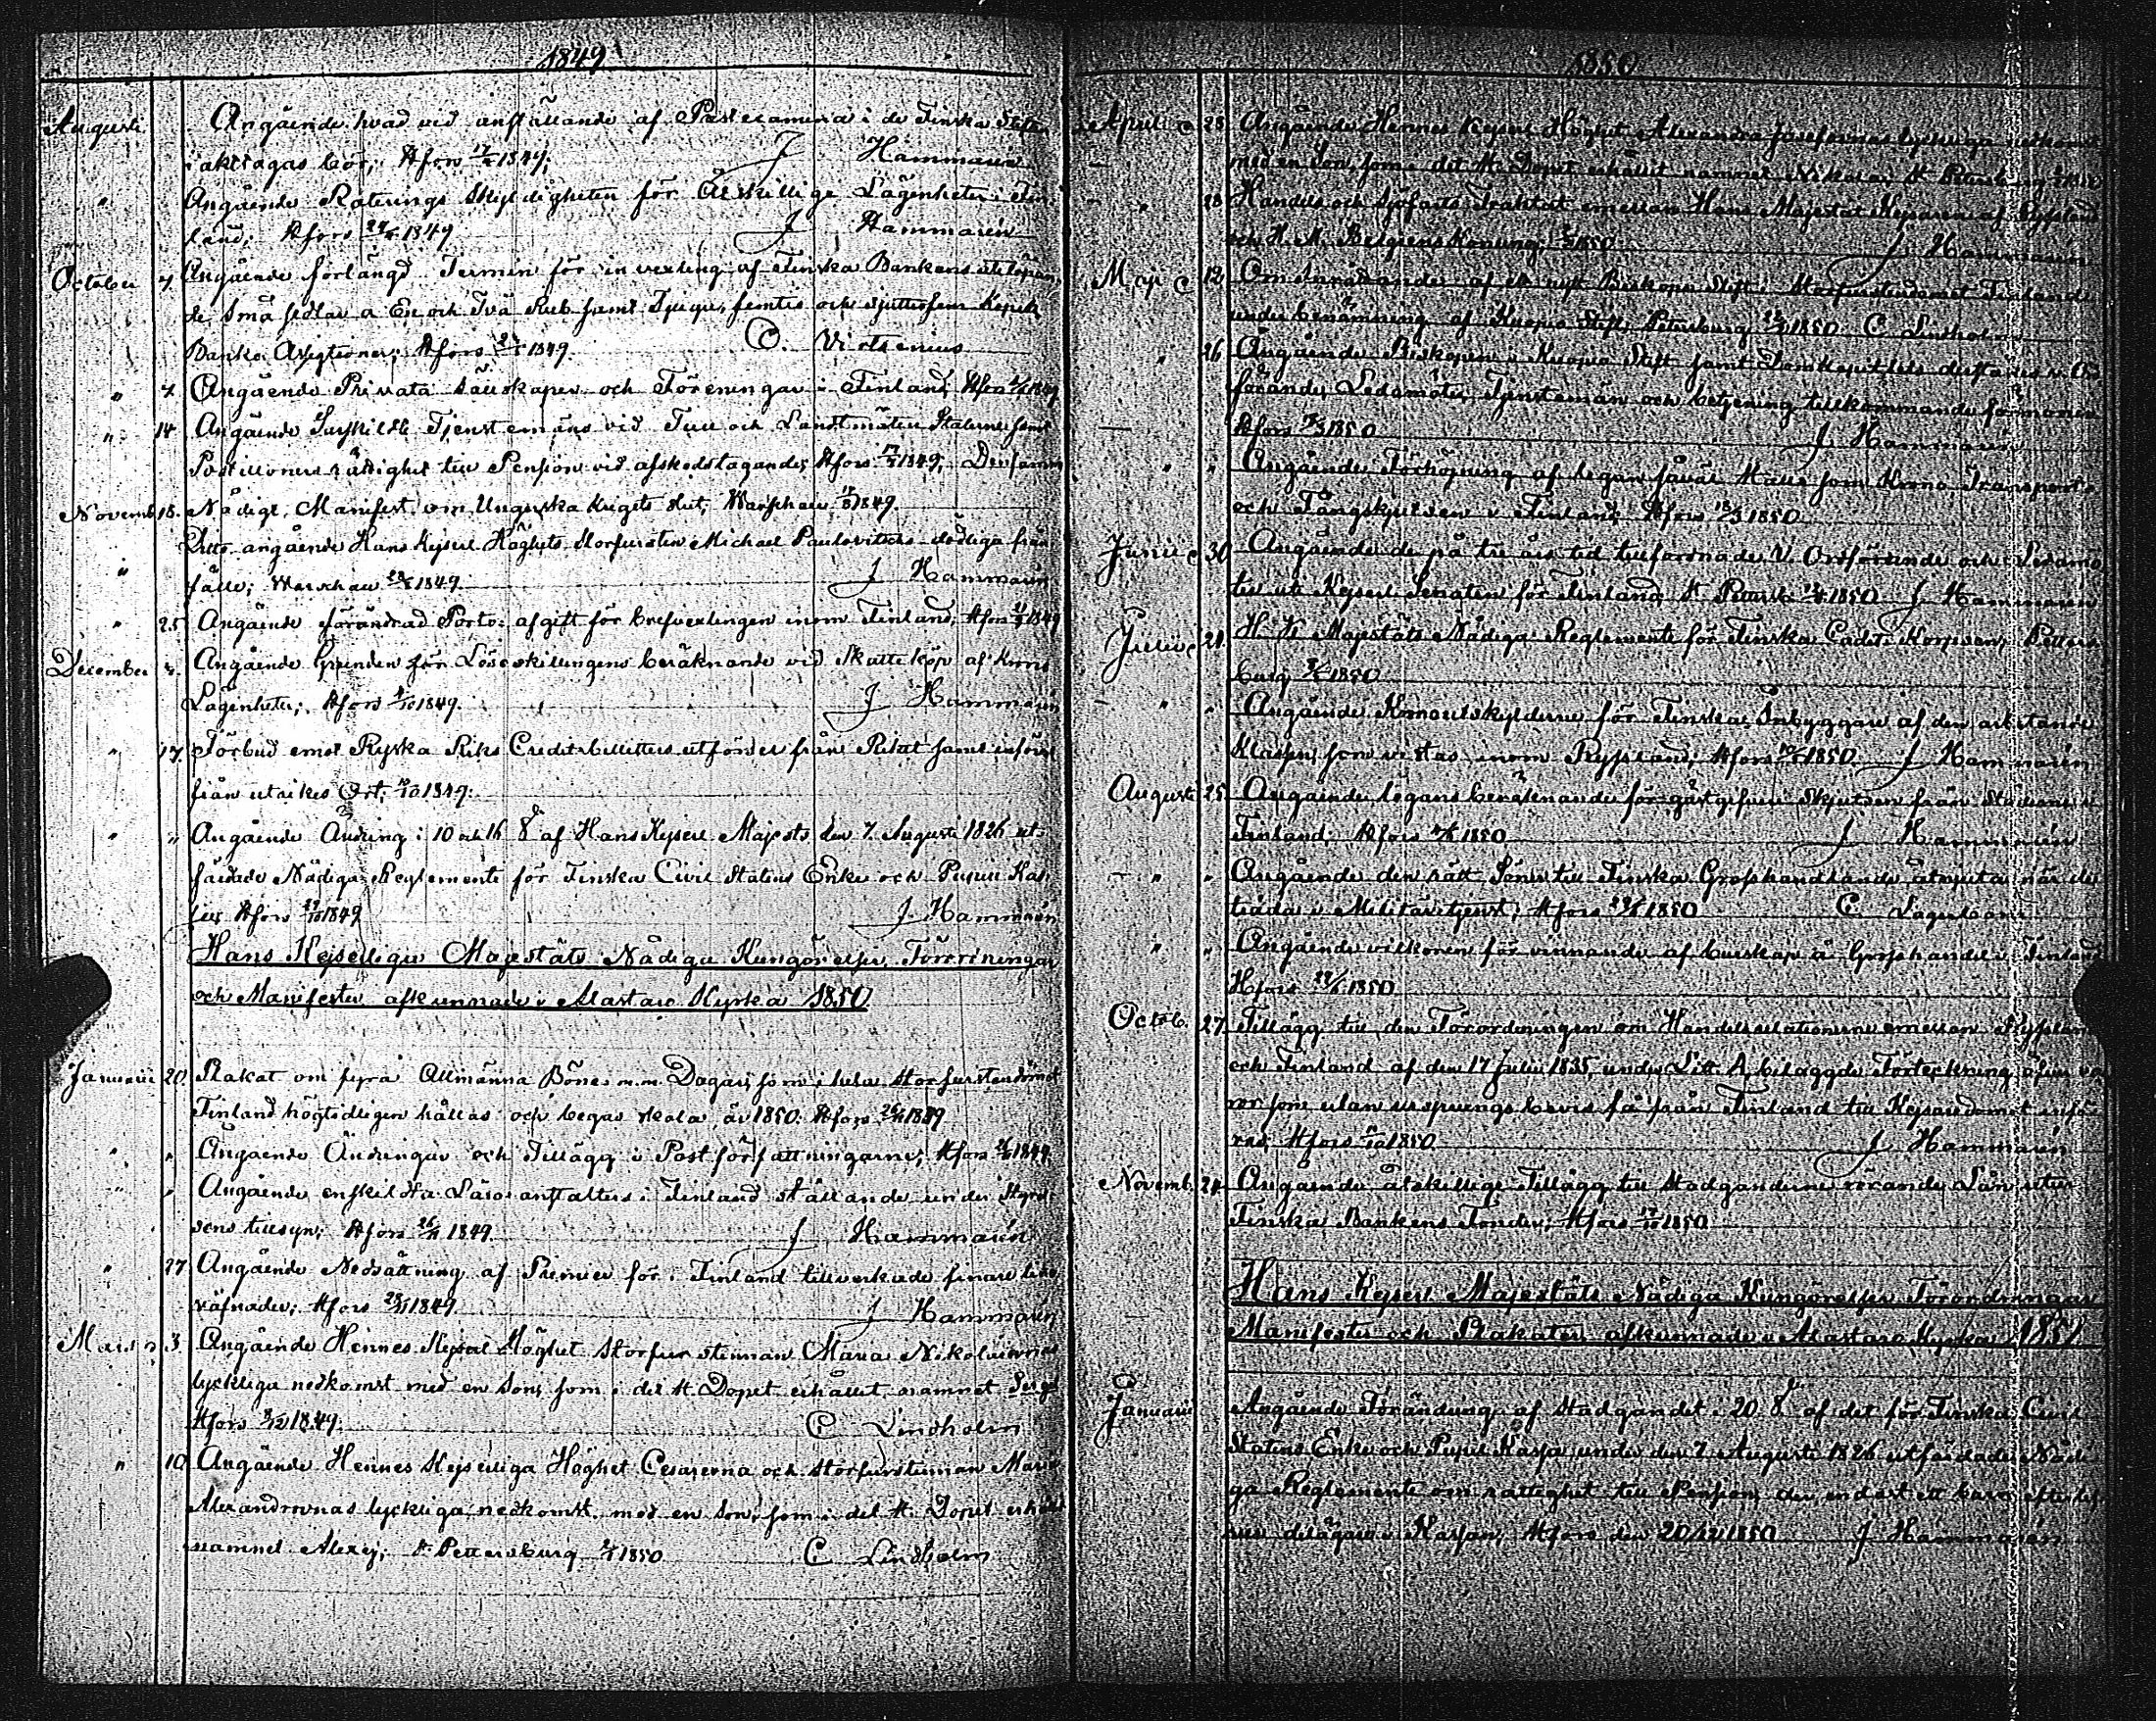 1849
Augusti Angående hvad vid anställande af Pastorsexamina i de Finska Stiften
iakttagas bör; Hfors 1849; J Hammarén
" Angående Roterings Skyldigheten för Åtskillige Lägenheter i Fin
land; Hfors 1849 J Hammarén
October 7 Angående förlängd Termin för invexling af Finska Bankens utelöpan
de små sedlar a En och Två Rub samt Tjugu, femtio och sjuttiofem Kopek
Banko Assignationer; Hfors 1849 O. Virtzenius
" 7 Angående Privata Sällskaper och Föreningar i Finland, Hfors 1849
" 14 Angående Enskildte Tjenstemäns vid Tull och Landtmäteri Staterne samt
Postilloners rättighet till Pension vid afskedstagande; Hfors 1849; Densamm
Novemb. 18. Nådigt Manifest om Ungerska krigets slut; Warschau 1849.
" Ditto angående Hans Kejserl. Höghets Storfursten Michael Paulovitschs dödliga från
fälle; Warschau 1849 J Hammarén
" 25 Angående förändrad Porto-afgift för brefvexlingen inom Finland; Hfors 1849
December Angående Grunden för Löseskillingens beräknande vid Skatteköp af Krono
Lägenheter; Hfors 1849 J Hammarén
" 17 Förbud emot Ryska Riks Creditbilletters utförsel från Riket samt införsel
från utrikes Ort; 1849
" " Angående Ändring i 10 och 16 § af Hans Kejserl Majests den 7. Augusti 1826 ut-
färdade Nådiga Reglemente för Finska Civil Statens Enke och Pupill Kas
sa; Hfors 1849 J. Hammarén
Hans Kejserliga Majestäts Nådiga Kungörelser, Förordningar
och Manifester afkunnade i Alastaro Kyrka 1850
Januarii 20 Plakat om fyra Allmänna Böne- m.m. Dagar, som i hela Storfurstendömet
Finland högtidligen hållas och begås skola år 1850. Hfors 1849
" " Angående Ändringar och Tillägg i Postförfattningarne; Hfors 1849
" " Angående enskildta Läroanstalters i Finland ställande under Styrel
sens tillsyn; Hfors 1849. J Hammarén
" 27 Angående Nedsättning af Premier för i Finland tillverkade finare linne
väfnader; Hfors 1849 J Hammarén
Mars 3 Angående Hennes Kejserl Höghet Storfurstinnan Maria Nikolaievnas
lyckliga nedkomst med en Son, som i det H. Dopet erhållit namnet Sergei
Hfors 1849. C Lindholm
" 10 Angående Hennes Kejserliga Höghet Cesarevna och Storfurstinnan Maria
Alexandrovnas lyckliga nedkomst med en Son, som i det H. Dopet erhållit
namnet Alexej; St Pettersburg 1850 C Lindholm
1850
April 28 Angående Hennes Kejserl Höghet Alexandra Josefovnas lyckliga nedkomst
med en Son, som i det H. Dopet erhållit namnet Nikolai; St Petersburg
" " 28 Handels och Sjöfarts Traktat emellan Hans Majestät Kejsaren af Ryssland
och H. M. Belgiens Konung; 1850 J Hammarén
Maji 12 Om inrättandet af ett nytt Biskops Stift i Storfurstendömet Finland
under benämning af Kuopio Stift; Petersburg 1850 C Lindholm
" 26 Angående Biskopen i Kuopio Stift samt Domkapitlets derstädes v. Ord
förande, Ledamöter, Tjenstemän och betjening tillkommande förmåner
Hfors 1850 J Hammarén
" " Angående Förhöjning af legan såväl Hålls som Krono Transport
och Fångskjutsen i Finland; Hfors 1850
Junii 30 Angående de på tre års tid tillforordnade V. Ordförande och Ledamö
ter uti Kejserl Senaten för Finland, St Petersb 1850 J Hammarén
Julii 21. H. K. Majestäts Nådiga Reglemente för Finska Cadett Korpsen; Petters
burg 1850
" " Angående Kronoutskylderne för Finska Inbyggare af den arbetande
Klassen, som vistas inom Ryssland; Hfors 1850 J Hammarén
Augusti 25 Angående legans beräknande för gästgifveri Skjutsen från Städerne i
Finland; Hfors 1850 J Hammarén
" " Angående den rätt Söner till Finska Grosshandlande åtnjuta när de
träda i Militärtjenst; Hfors 1850 C Lagerbom
" " Angående vilkoren för vinnande af burskap å Grosshandel i Finland
Hfors 1850
Octob. 27 Tillägg till den Förordningen om Handelsrelationerne emellan Ryssland
och Finland af den 17 Julii 1835, under Litt. A, bilaggde Förteckning öfver va
ror som utan ursprungs bevis få från Finland till Kejsaredömet inför
ras; Hfors 1850 J Hammarén
Novemb. 24 Angående åtskillige Tillägg till Stadgandene rörande Lån utur
Finska Bankens Fonder; Hfors 1850
Hans Kejserl Majestäts Nådiga Kungörelser Förordningar
Manifester och Plakater afkunnade i Alastaro Kyrka 1851
Januarii Angående Förändring af Stadgandet i 20 § af det för Finska Civil
Statens Enke och Pupill Kassa under den 7 Augusti 1826 utfärdade Nådi
ga Reglemente om rättighet till Pension der endast ett barn efter lef
ver delägare i Kassan, Hfors den 20/12 1850 J Hammarén